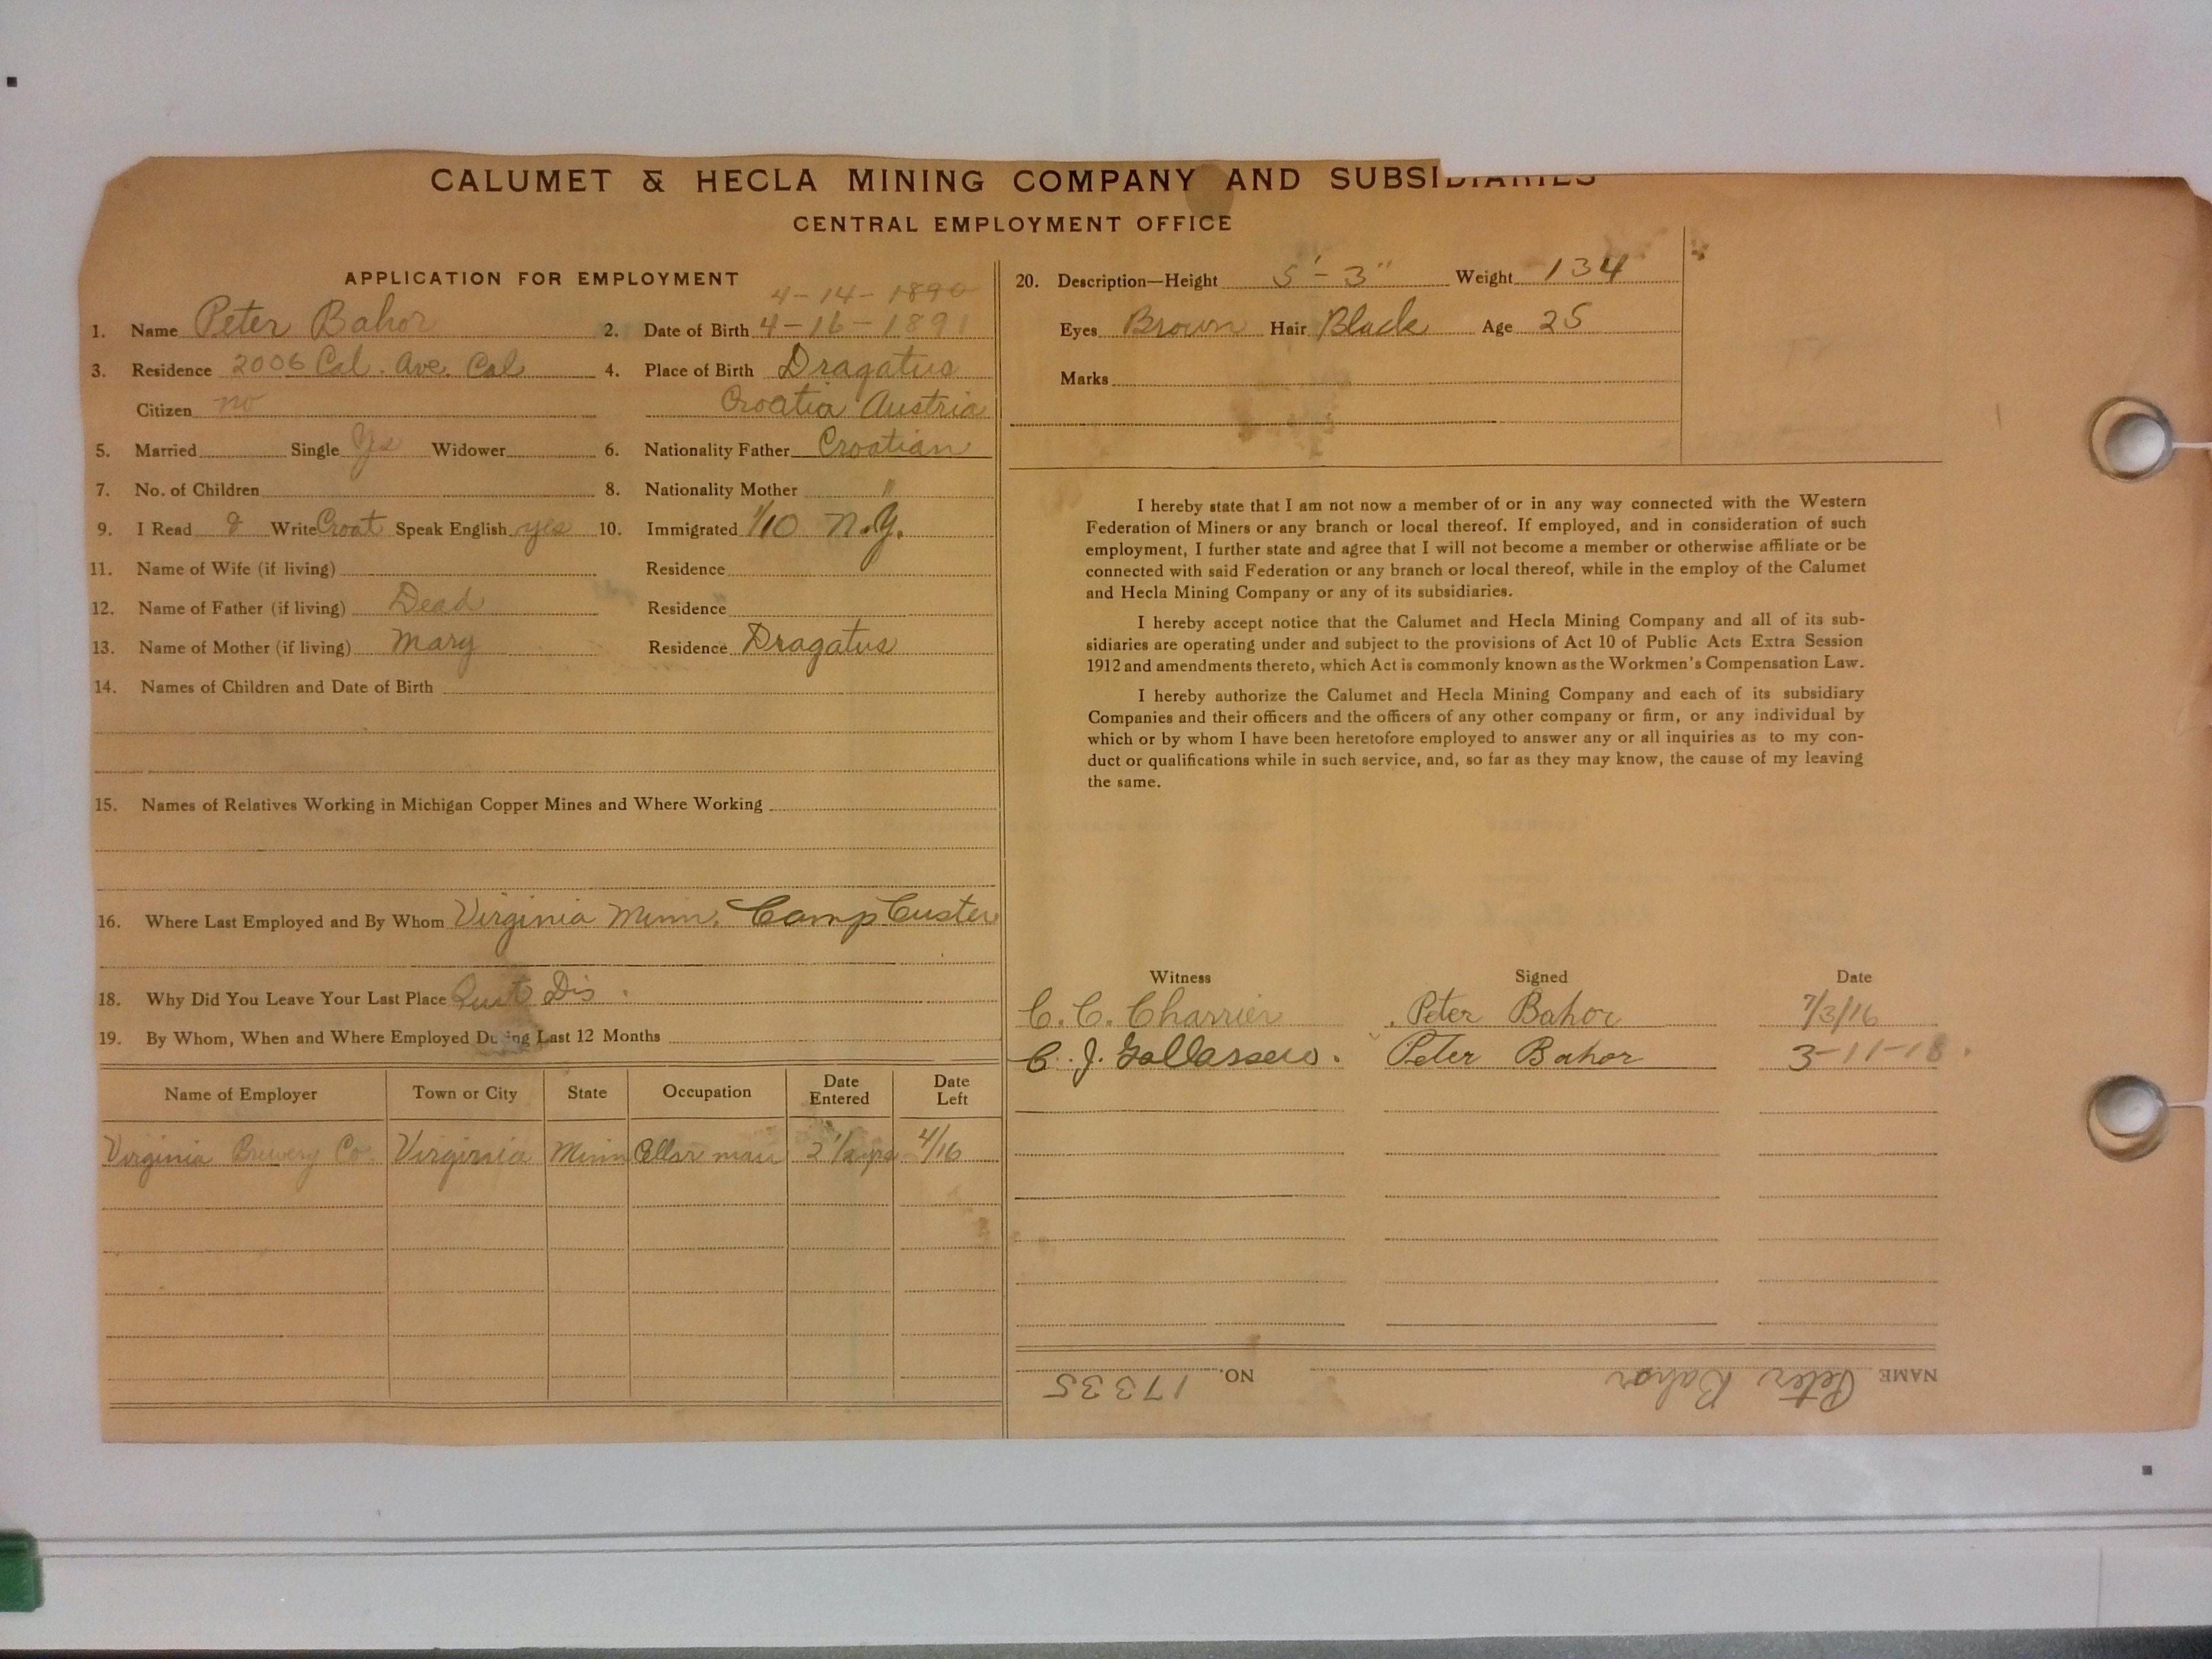 CALUMET & HECLA MINING COMPANY AND SUBSIDIARIES
CENTRAL EMPLOYMENT OFFICE
APPLICATION FOR EMPLOYMENT
4-14-1890
1. Name Peter Bahor 2. Date of Birth 4-16-1891
3. Residence 2006 Cal. Ave. Cal 4. Place of Birth Dragatus
Citizen no Croatia Austria
5. Married Single Yes Widower 6. Nationality Father Croatian
7. No. of Children 8. Nationality Mother "
9. I Read & Write Croat Speak English yes 10. Immigrated 1/10 N.Y.
11. Name of Wife (if living) Residence
12. Name of Father (if living) Dead Residence
13. Name of Mother (if living) Mary Residence Dragatus
14. Names of Children and Date of Birth
15. Names of Relatives Working in Michigan Copper Mines and Where Working
16. Where Last Employed and By Whom Virginia Minn, Camp Custer
18. Why Did You Leave Your Last Place Dis.
19. By Whom, When and Where Employed During Last 12 Months
Name of Employer Town or City State Occupation Date Entered Date Left
Virginia Brewery Co. Virginia Minn Cellar man 2 1/2 yrs 4/16
20. Description—Height 5'-3" Weight 134
Eyes Brown Hair Black Age 25
Marks
I hereby state that I am not now a member of or in any way connected with the Western
Federation of Miners or any branch or local thereof. If employed, and in consideration of such
employment, I further state and agree that I will not become a member or otherwise affiliate or be
connected with said Federation or any branch or local thereof, while in the employ of the Calumet
and Hecla Mining Company or any of its subsidiaries.
I hereby accept notice that the Calumet and Hecla Mining Company and all of its sub-
sidiaries are operating under and subject to the provisions of Act 10 of Public Acts Extra Session
1912 and amendments thereto, which Act is commonly known as the Workmen's Compensation Law.
I hereby authorize the Calumet and Hecla Mining Company and each of its subsidiary
Companies and their officers and the officers of any other company or firm, or any individual by
which or by whom I have been heretofore employed to answer any or all inquiries as to my con-
duct or qualifications while in such service, and, so far as they may know, the cause of my leaving
the same.
Witness Signed Date
C. C. Charrier Peter Bahor 7/3/16
C. J. Peter Bahor 3-11-18.
NAME Peter Bahor NO. 17335